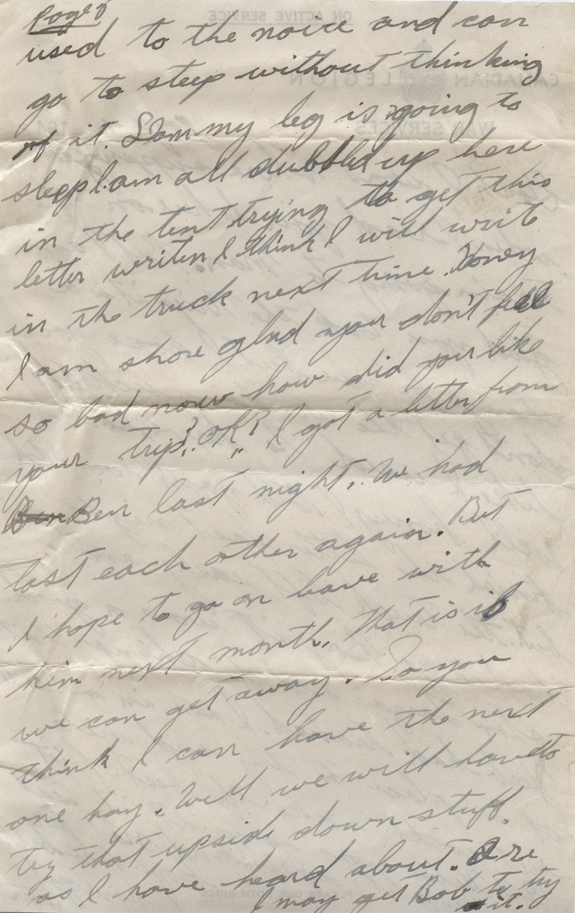 Page 8
used to the noice and can
go to sleep without thinking
of it. Dam my leg is going to
sleep I am all dubbled up here
in the tent trying to get this
letter writen I think I will write
in the truck next time. Honey
I am shore glad your don't feel
so bad now how did your like
your trip? OK? I got a letter from
Ben Ben last night. We had
lost each other again. But
I hope to go on leave with
him next month. That is if
we can get away. So you
think I can have the next
one hay. Well we will have to
try that upside down stuff.
as I have heard about. Or
I may get Bob to try
it.
ON ACTIVE SERVICE
CANADIAN LEGION
WAR SERVICES